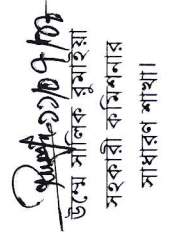 উম্মে সালিক রুমাইয়া
সহকারী কমিশনার
সাধারণ শাখা।